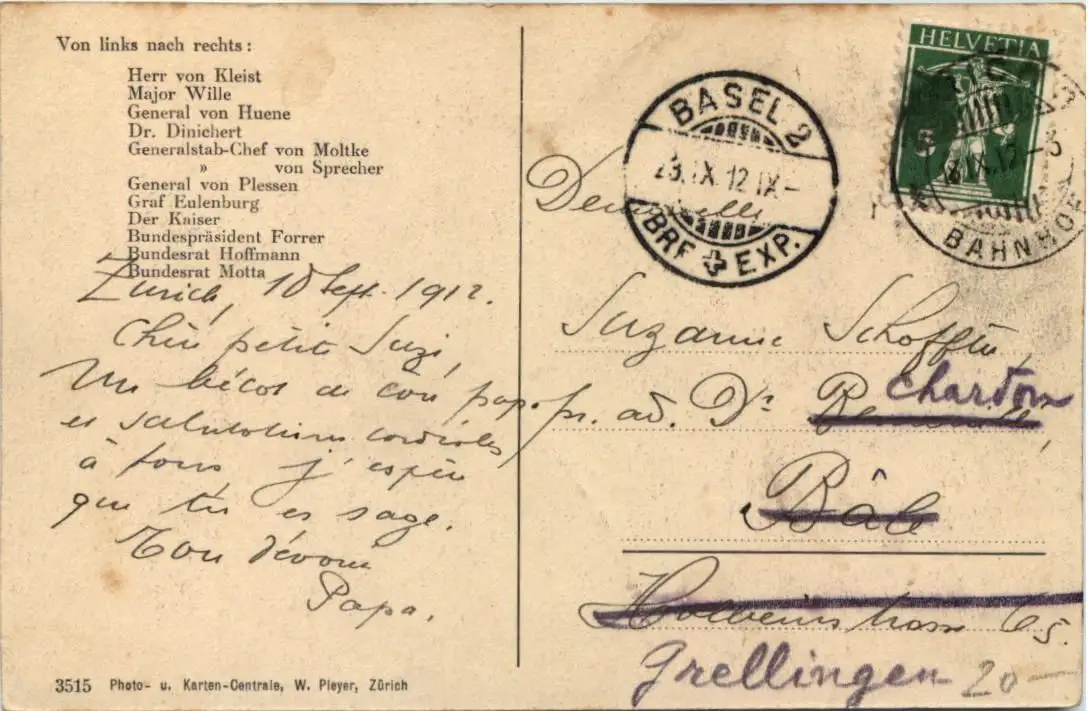 Von links nach rechts:
Herr von Kleist
Major Wille
General von Huene
Dr. Dinichert
Generalstab-Chef von Moltke
» von Sprecher
General von Plessen
Graf Eulenburg
Der Kaiser
Bundespräsident Forrer
Bundesrat Hoffmann
Bundesrat Motta
Zurich, 10 Sept. 1912.
petite Suzi,
Un bécot de ton papa
et salutations cordiales
à tous j'espère
que tu es sage.
Ton dévoué
Papa.
3515 Photo- u. Karten-Centrale, W. Pleyer, Zürich
HELVETIA
BAHNHOF
BASEL 2
23.IX.12.IX-
BRF EXP.
Suzanne
pr. ad. Dr
Chardon
Bâle
Holbeinstrasse 65.
Grellingen
20-